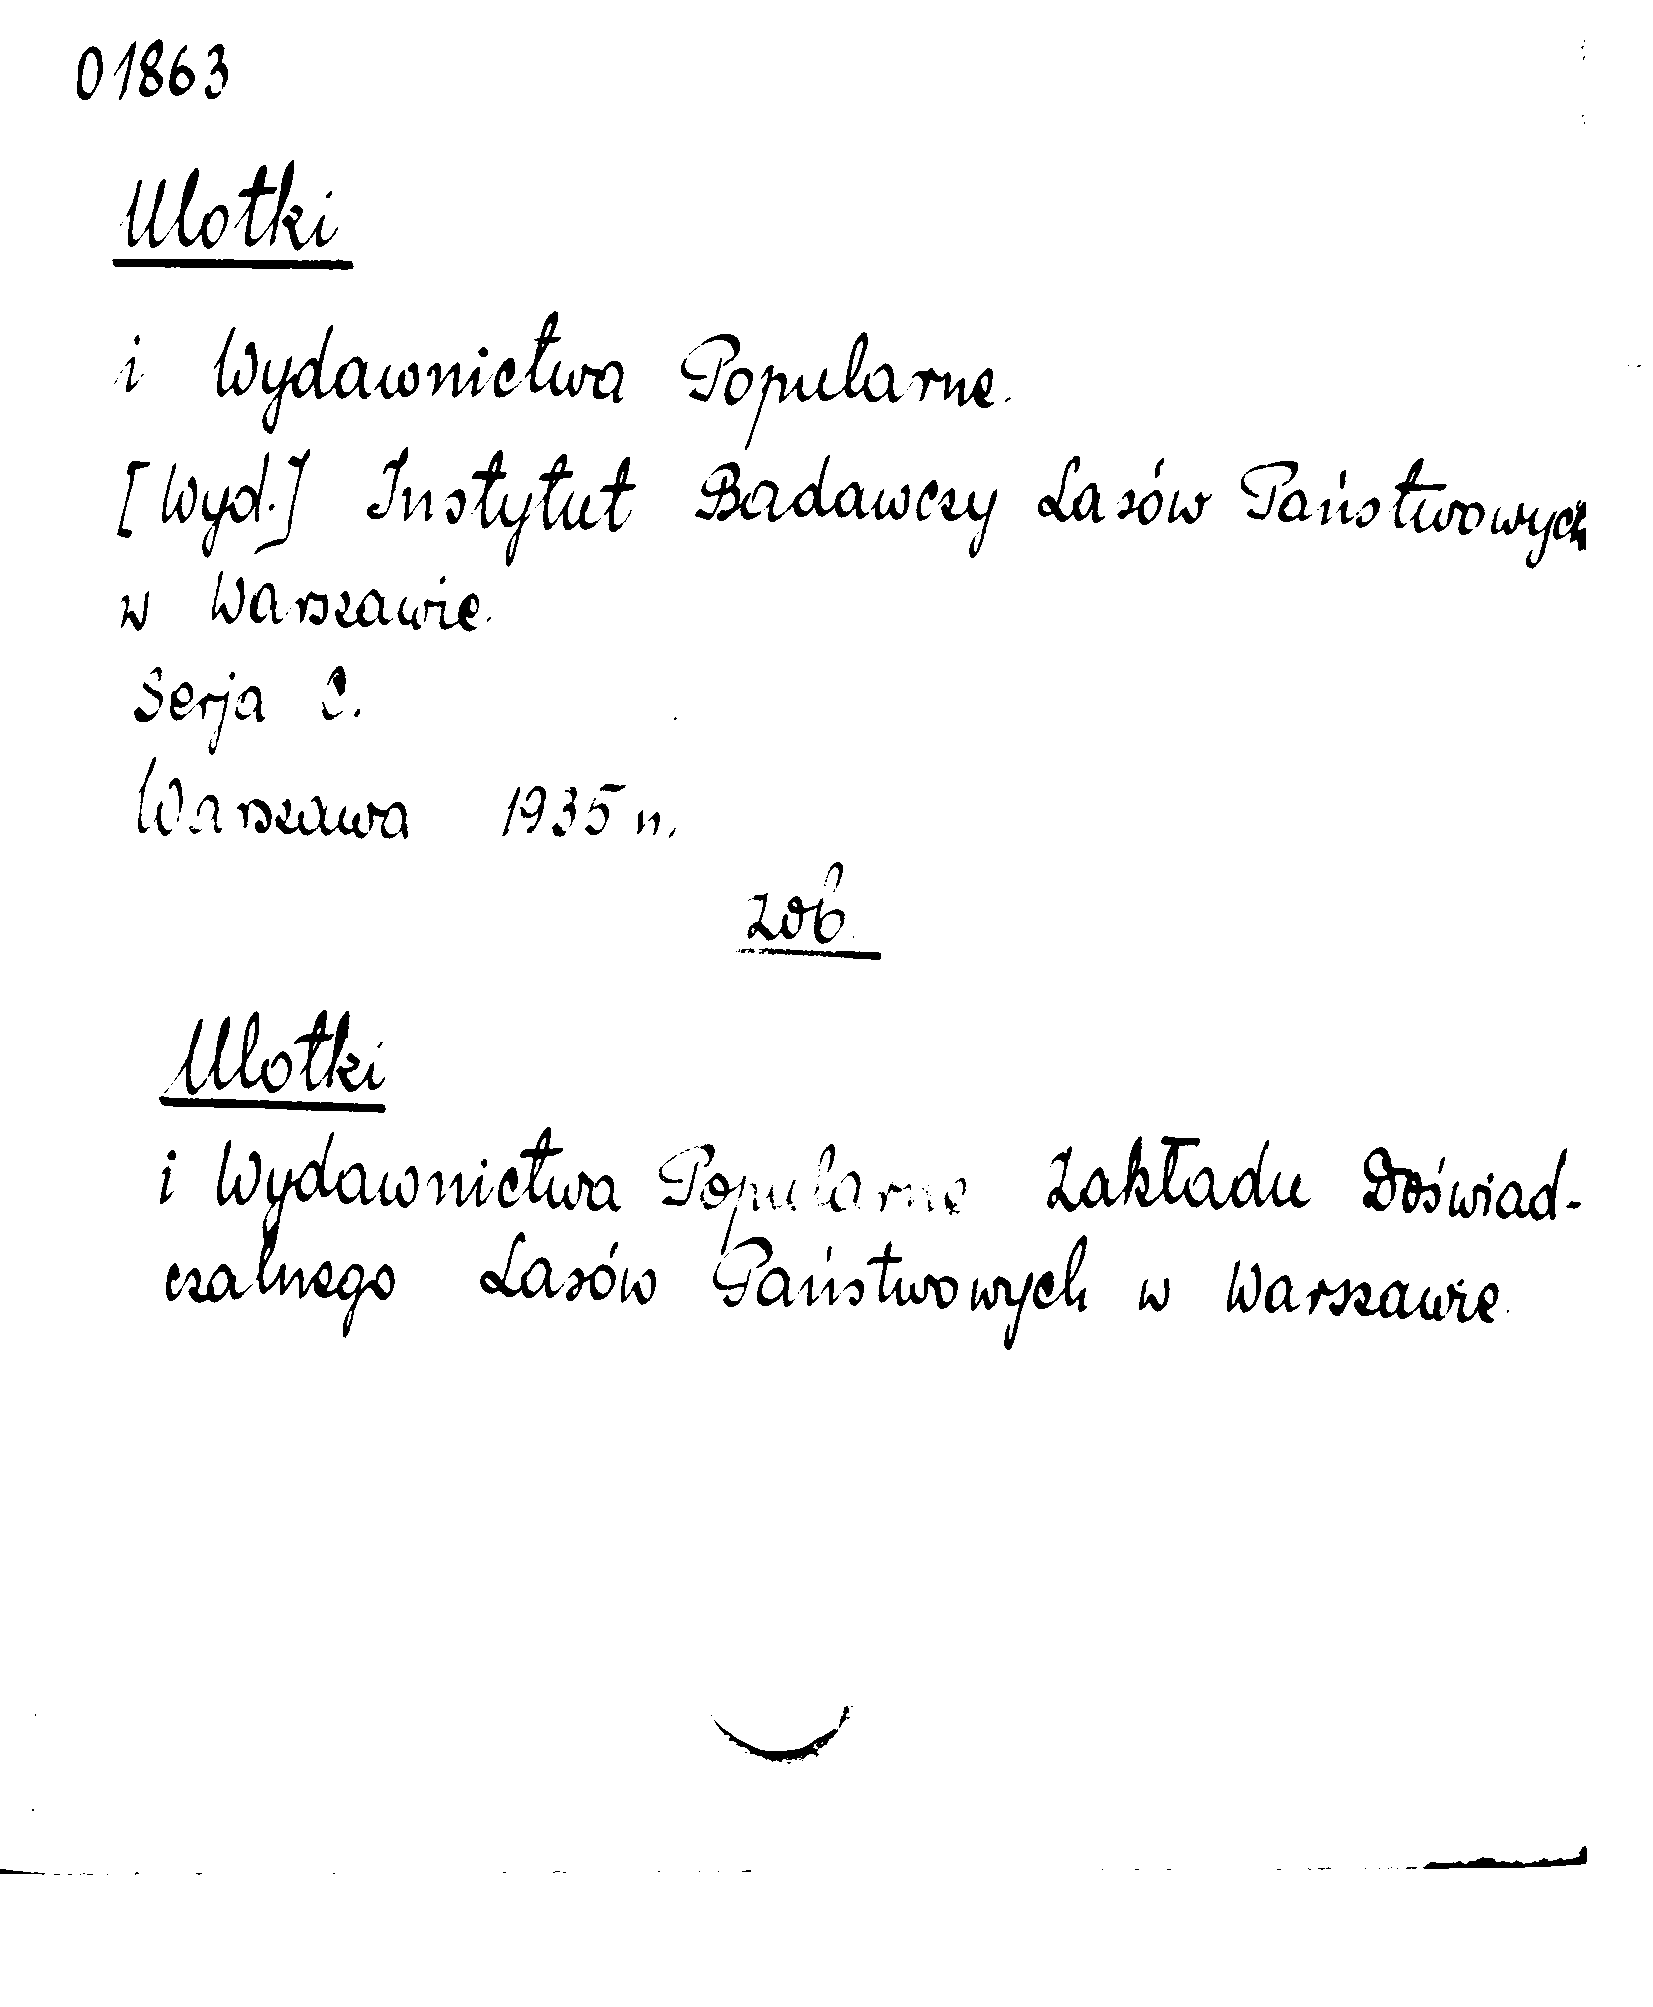 01863
Ulotki
i Wydawnictwa Popularne.
[Wyd.] Instytut Badawczy Lasów Państwowych
w Warszawie.
Serja C.
Warszawa 1935 n.
zob.
Ulotki
i Wydawnictwa Popularne Zakładu Doświad-
czalnego Lasów Państwowych w Warszawie.